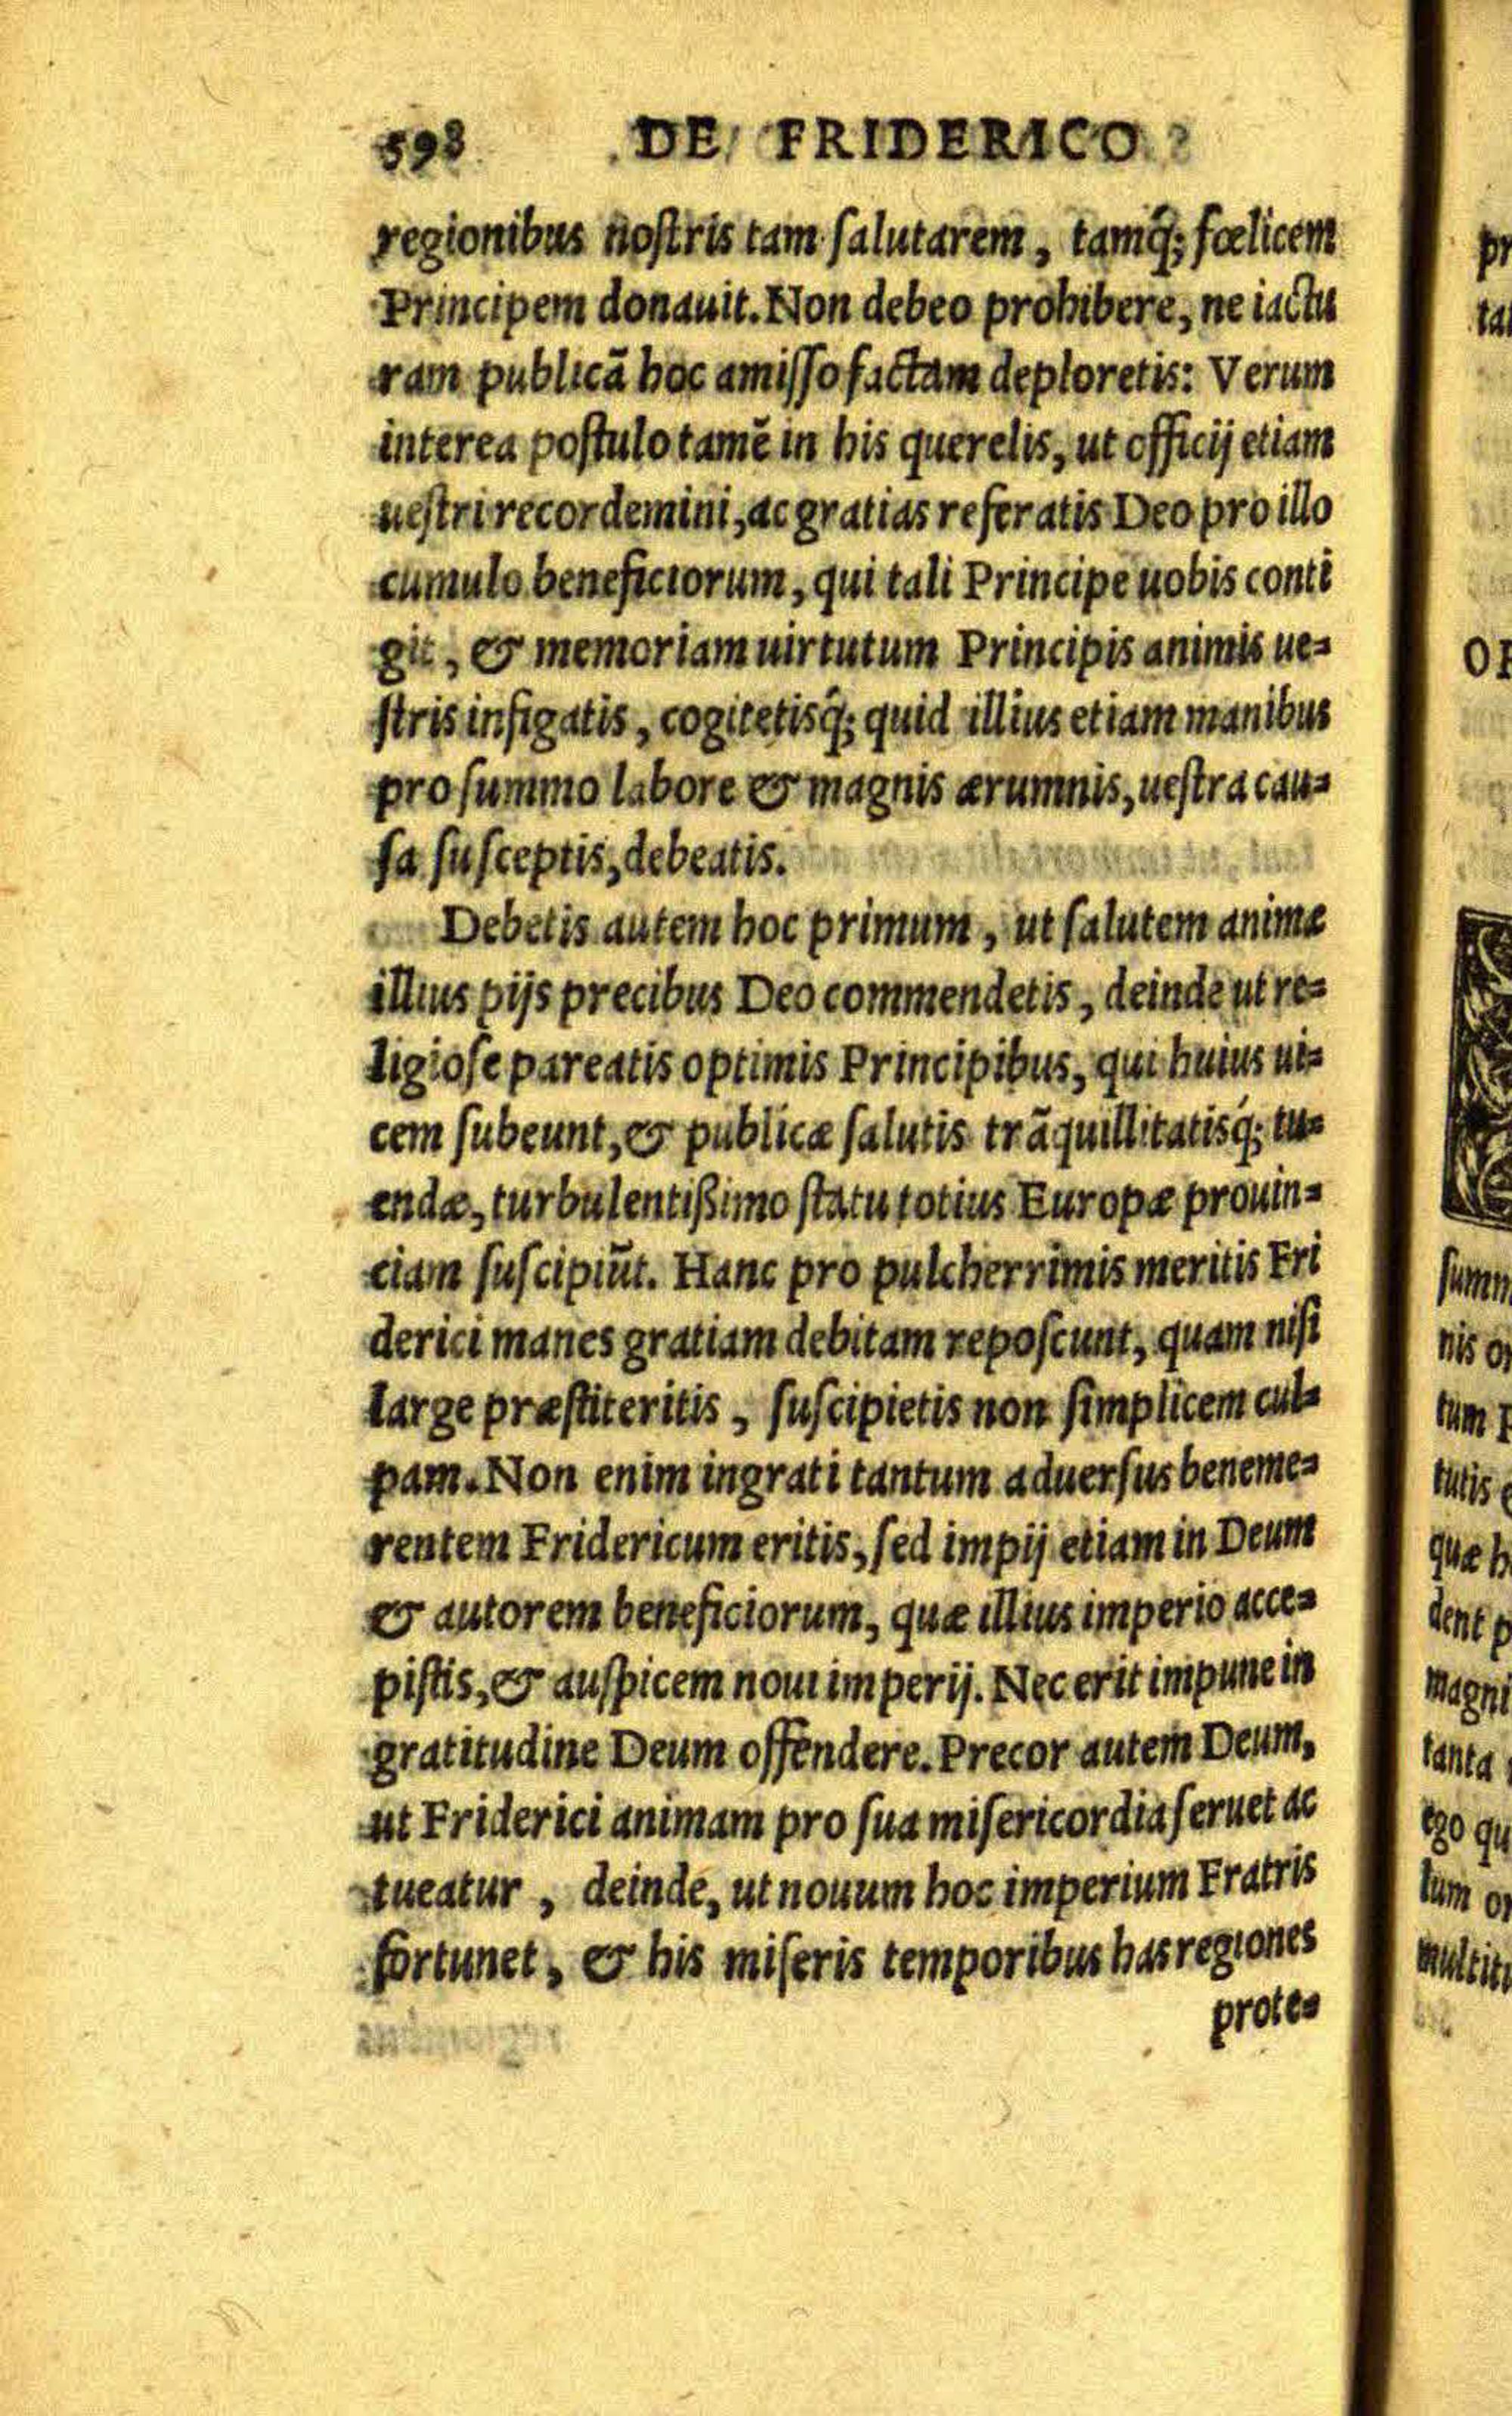 598 DE FRIDERICO
regionibus nostris tam salutarem, tamq́; fœlicem
Principem donauit. Non debeo prohibere, ne iactu
ram publicã hoc amisso factam deploretis: Verum
interea postulo tamẽ in his querelis, ut officij etiam
uestri recordemini, ac gratias referatis Deo pro illo
cumulo beneficiorum, qui tali Principe uobis conti
git, & memoriam uirtutum Principis animis ue=
stris infigatis, cogitetisq́; quid illius etiam manibus
pro summo labore & magnis ærumnis, uestra cau=
sa susceptis, debeatis.
Debetis autem hoc primum, ut salutem animæ
illius pijs precibus Deo commendetis, deinde ut re=
ligiose pareatis optimis Principibus, qui huius ui=
cem subeunt, & publicæ salutis trãquillitatisq́; tu=
endæ, turbulentißimo statu totius Europæ prouin=
ciam suscipiũt. Hanc pro pulcherrimis meritis Fri
derici manes gratiam debitam reposcunt, quam nisi
large præstiteritis, suscipietis non simplicem cul=
pam. Non enim ingrati tantum aduersus beneme=
rentem Fridericum eritis, sed impij etiam in Deum
& autorem beneficiorum, quæ illius imperio acce=
pistis, & auspicem noui imperij. Nec erit impune in
gratitudine Deum offendere. Precor autem Deum,
ut Friderici animam pro sua misericordia seruet ac
tueatur, deinde, ut nouum hoc imperium Fratris
fortunet, & his miseris temporibus has regiones
prote=